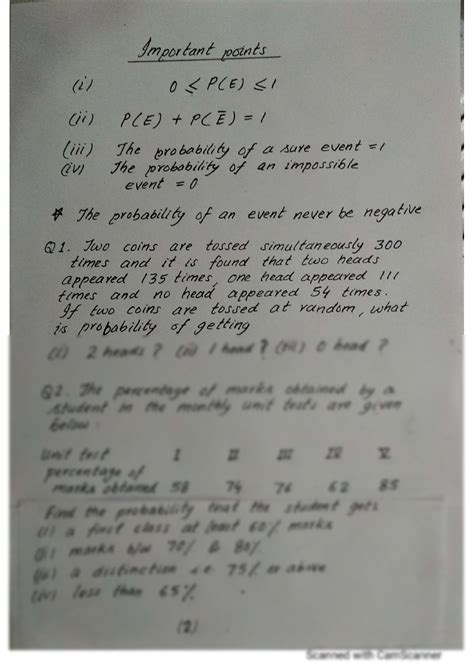 Important points
(i) 0 ≤ P(E) ≤ 1
(ii) P(E) + P(E̅) = 1
(iii) The probability of a sure event = 1
(iv) The probability of an impossible
event = 0
* The probability of an event never be negative
Q1. Two coins are tossed simultaneously 300
times and it is found that two heads
appeared 135 times, one head appeared 111
times and no head appeared 54 times.
If two coins are tossed at random, what
is probability of getting
(i) 2 heads ? (ii) 1 head ? (iii) 0 head ?
Q2. The percentage of marks obtained by a
student in the monthly unit tests are given
below:
Unit test I II III IV V
percentage of
marks obtained 58 74 76 62 85
Find the probability that the student gets
(i) a first class at least 60% marks
(ii) marks b/w 70% & 80%
(iii) a distinction i.e. 75% or above
(iv) less than 65%
(2)
Scanned with CamScanner